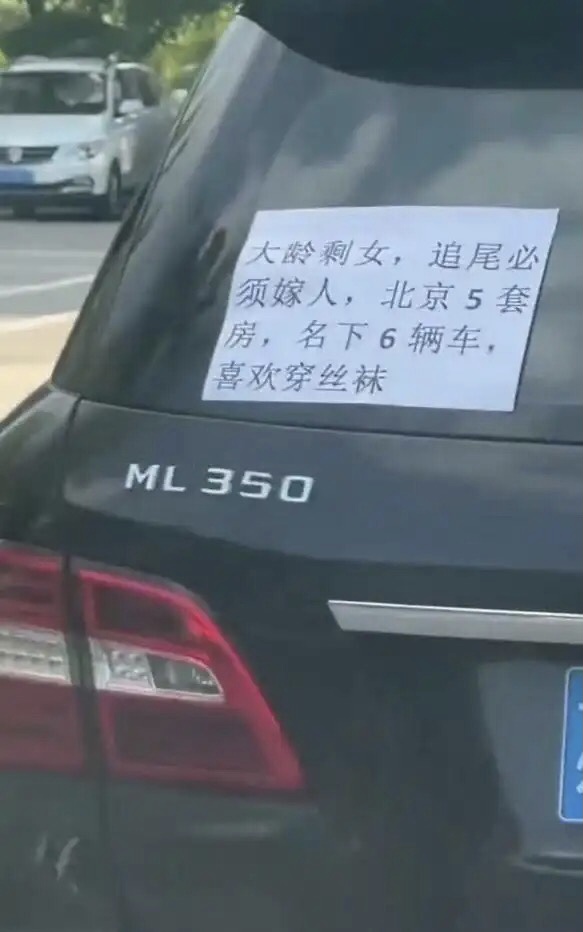 大龄剩女，追尾必
须嫁人，北京 5 套
房，名下 6 辆车，
喜欢穿丝袜
ML 350